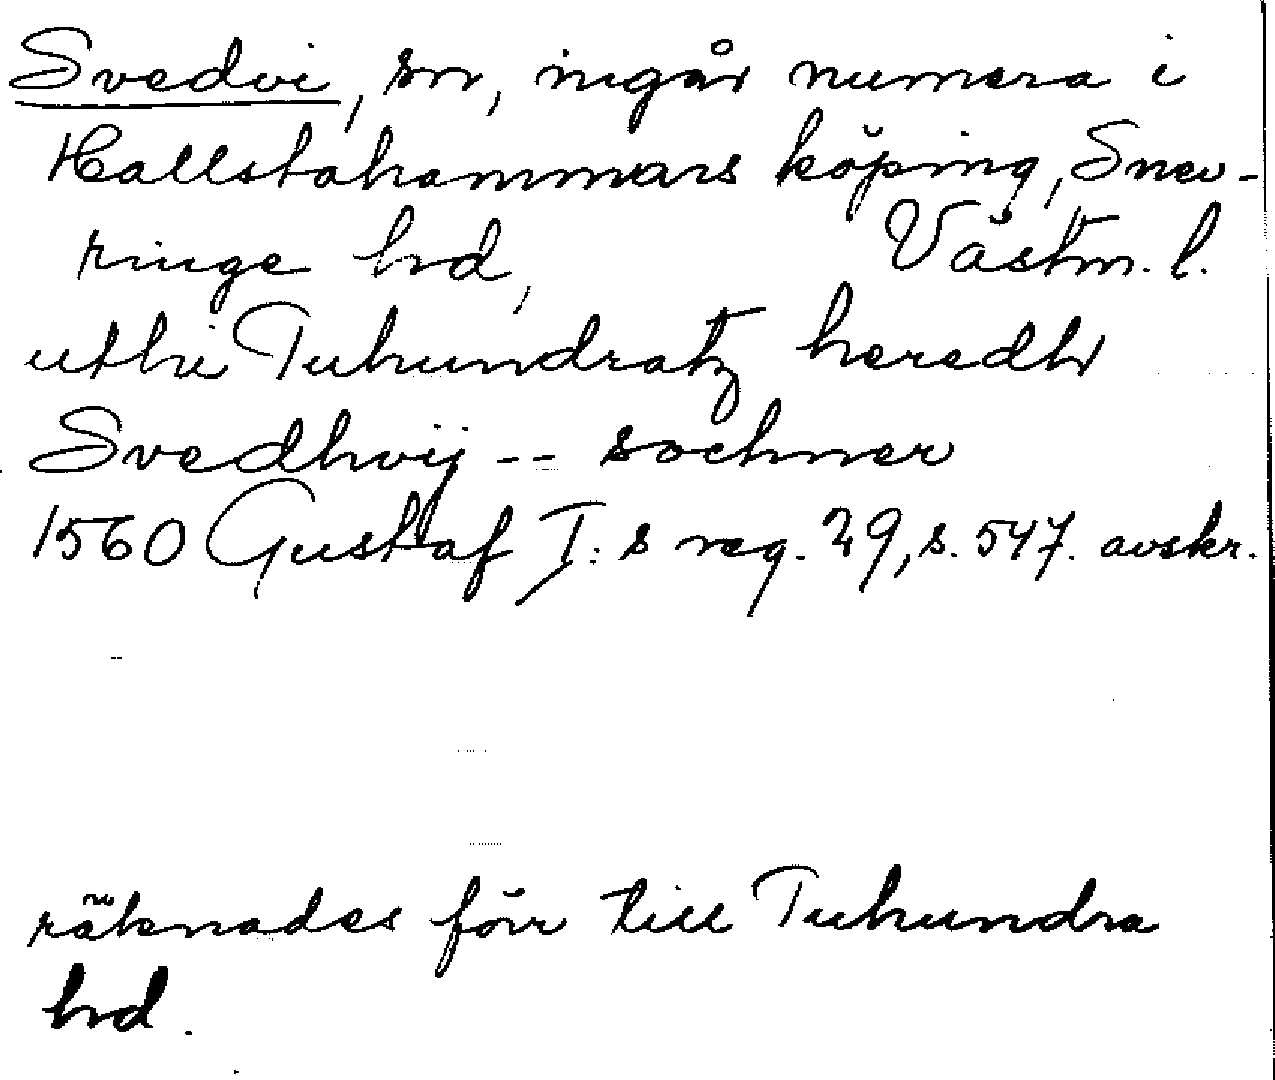 Svedvi, sn, ingår numera i
Hallstahammars köping, Snev-
ringe hd, Västm. l.
uthi Tuhundratz heredh
Svedhvij -- sochner
1560 Gustaf I: s reg. 29, s. 547. avskr.
räknades förr till Tuhundra
hd.